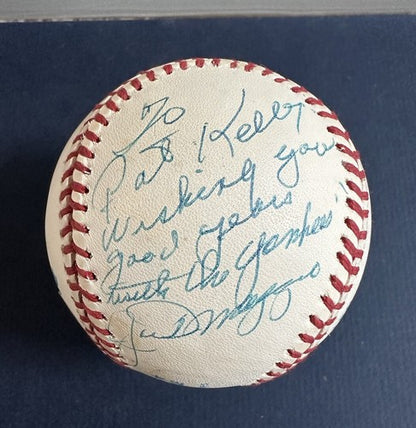 To
Pat Kelly
Wishing you
good years
with the Yankees
Joe DiMaggio